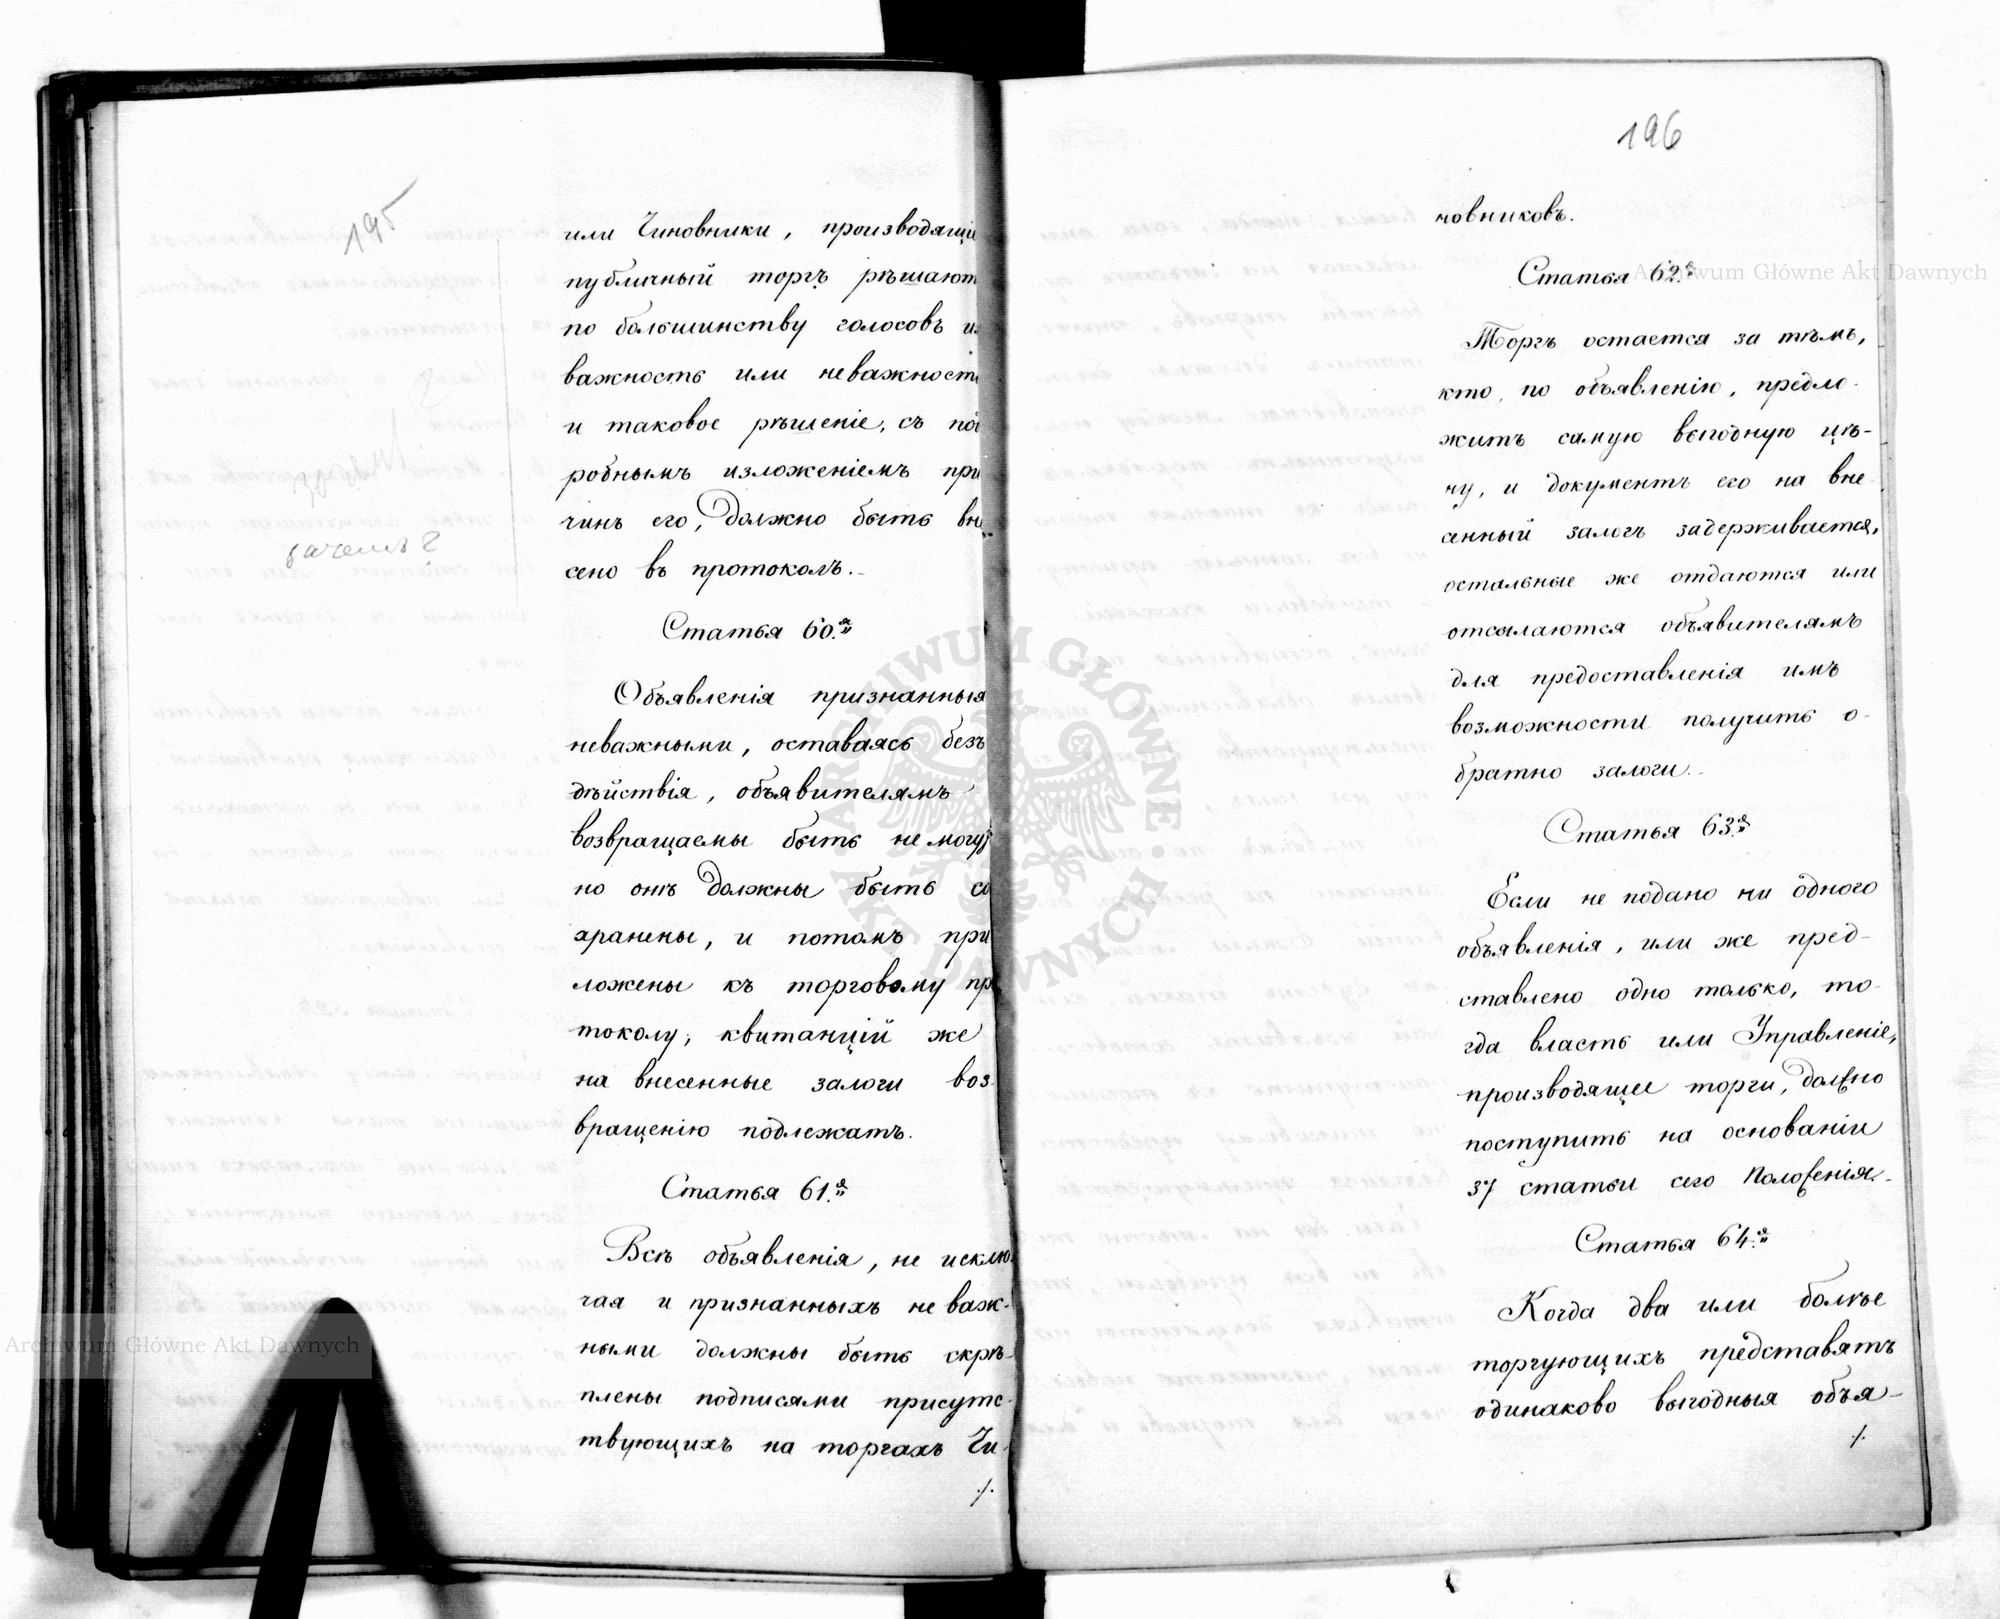 195
или Чиновники, производящіе
публичный торгъ рѣшают
по большинству голосовъ и
важность или неважность
и таковое рѣшеніе, съ по
робнымъ изложеніемъ при
чинъ его, должно быть вне
сено въ протоколъ.
зачемъ?
Статья 60.я
Объявленія признанныя
неважными, оставаясь безъ
дѣйствія, объявителямъ
возвращаемы быть не могу
но онѣ должны быть со
хранены, и потомъ при
ложены къ торговому пр
токолу, квитанцій же
на внесенные залоги воз
вращенію подлежатъ.
Статья 61.я
Всѣ объявленія, не исклю
чая и признанныхъ неваж-
ными должны быть скрѣ-
плены подписями присутс-
твующихъ на торгахъ Чи-
./.
196
новниковъ.
Статья 62.я
Торгъ остается за тѣмъ,
кто, по объявленію, предло-
житъ самую выгодную цѣ-
ну, и документъ его на вне-
сенный залогъ задерживается,
остальные же отдаются или
отсылаются объявителямъ
для предоставленія имъ
возможности получить о-
братно залоги.
Статья 63.я
Если не подано ни одного
объявленія, или же пред-
ставлено одно только, то-
гда власть или Управленіе,
производящее торги, должно
поступить на основаніи
37 статьи сего Положенія.
Статья 64.я
Когда два или болѣе
торгующихъ представятъ
одинаково выгодныя объя-
./.
Archiwum Główne Akt Dawnych
Archiwum Główne Akt Dawnych
ARCHIWUM GŁÓWNE AKT DAWNYCH